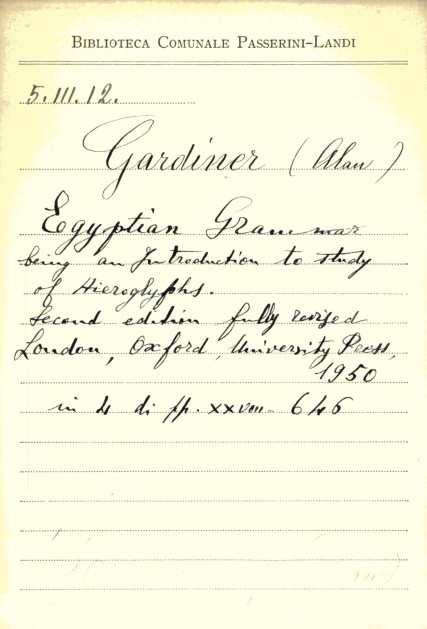 BIBLIOTECA COMUNALE PASSERINI-LANDI
5.III.12.
Gardiner (Alan)
Egyptian Grammar
being an Introduction to study
of Hieroglyphs.
Second edition fully revised
London, Oxford, University Press,
1950
in 4 di pp. XXVIII- 646